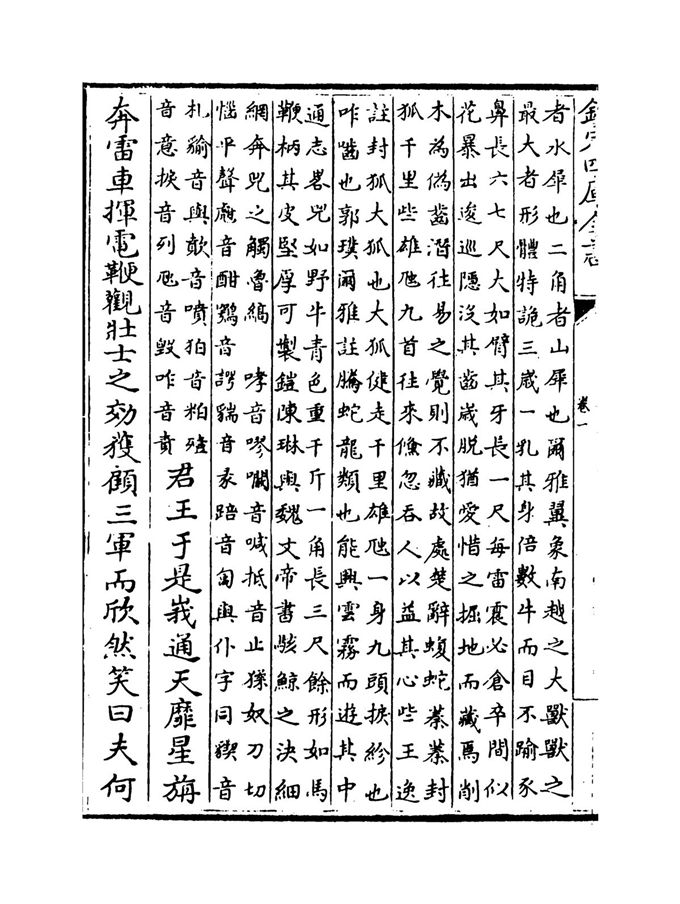 欽定四庫全書
卷一
者水犀也二角者山犀也爾雅翼象南越之大獸獸之
最大者形體特詭三歲一乳其身倍數牛而目不踰豕
鼻長六七尺大如臂其牙長一尺每雷震必倉卒間似
花暴出逡巡隱沒其齒歲脫猶愛惜之掘地而藏焉削
木為偽齒潛往易之覺則不藏故處楚辭蝮蛇蓁蓁封
狐千里些雄虺九首往來儵忽吞人以益其心些王逸
註封狐大狐也大狐健走千里雄虺一身九頭捩紾也
咋齧也郭璞爾雅註騰蛇龍類也能興雲霧而遊其中
通志畧兕如野牛青色重千斤一角長三尺餘形如馬
鞭柄其皮堅厚可製鎧陳琳與魏文帝書駭鯨之決細
網奔兕之觸魯縞 哮音嘐㘚音喊抵音止猱奴刀切
惱平聲音酣音諤貒音彖踣音匐與仆字同猰音
札貐音與歕音噴狛音粕殪
音意捩音列虺音毀咋音賁
君王于是峩通天靡星旃
奔雷車揮電鞭觀壯士之効獲顧三軍而欣然笑曰夫何